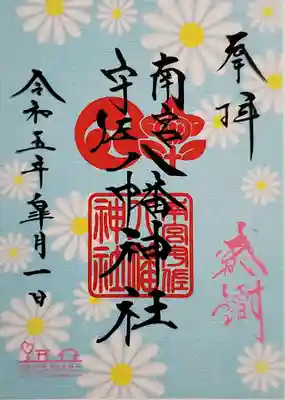 奉拝
南宮
宇佐
八幡神社
令和五年皐月一日
感謝
南宮宇佐
八幡
神社